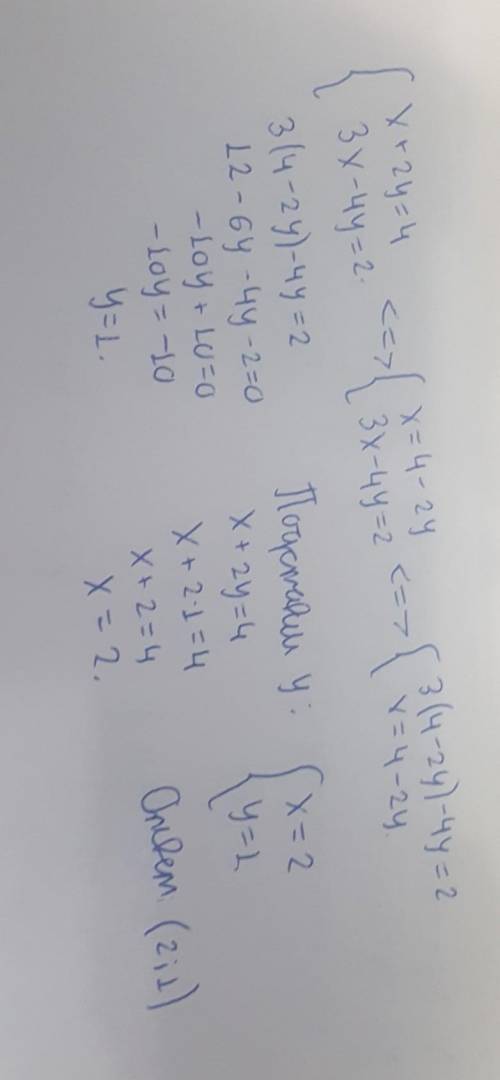 { x + 2y = 4 <=> { x = 4 - 2y <=> { 3(4 - 2y) - 4y = 2
3x - 4y = 2. 3x - 4y = 2 x = 4 - 2y.
3(4 - 2y) - 4y = 2
12 - 6y - 4y - 2 = 0
-10y + 10 = 0
-10y = -10
y = 1.
Подставим y:
x + 2y = 4
x + 2·1 = 4
x + 2 = 4
x = 2.
{ x = 2
y = 1
Ответ: (2;1)